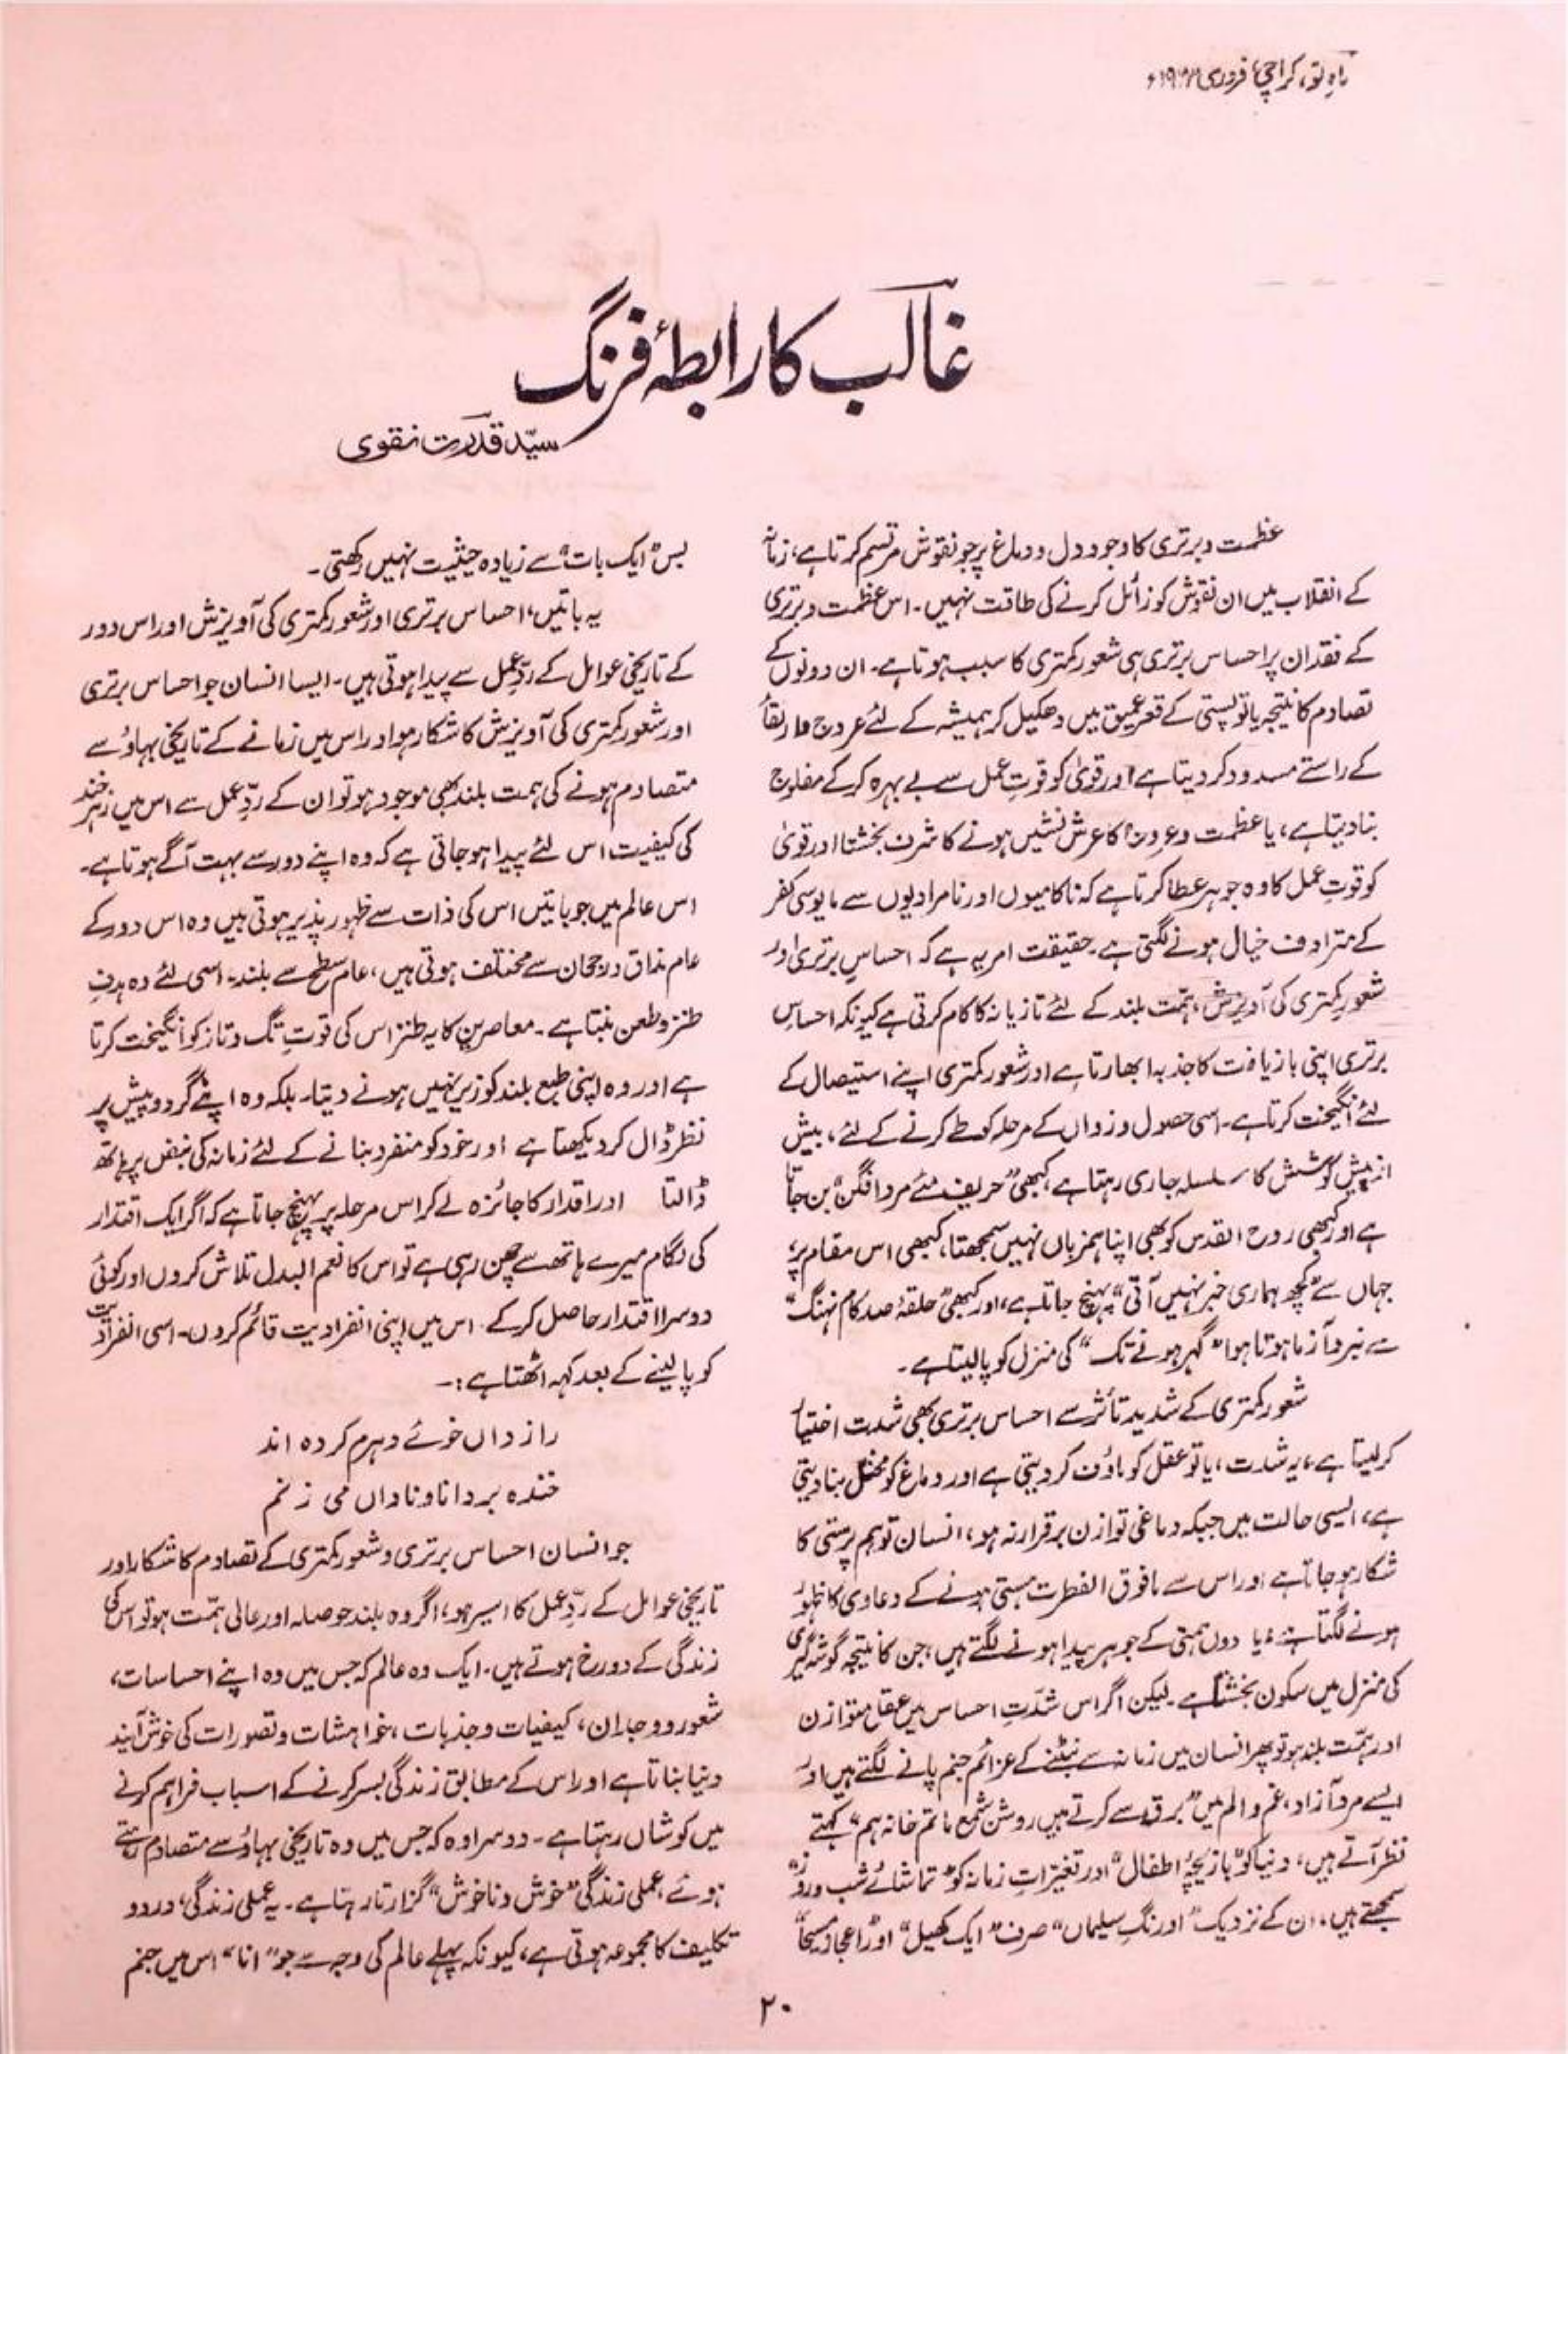 ماہِ نو، کراچی، فروری
غالب کا رابطۂ فرنگ
سیّد قدرت نقوی
عظمت و برتری کا وجود دل و دماغ پر جو نقوش مرتسم کرتا ہے، زمانہ
کے انقلاب میں ان نقوش کو زائل کرنے کی طاقت نہیں۔ اس عظمت و برتری
کے فقدان پر احساس برتری ہی شعور کمتری کا سبب ہوتا ہے۔ ان دونوں کے
تصادم کا نتیجہ یا تو پستی کے قعرِ عمیق میں دھکیل کر ہمیشہ کے لئے عروج و ارتقا
کے راستے مسدود کر دیتا ہے اور قویٰ کو قوتِ عمل سے بے بہرہ کر کے مفلوج
بنا دیتا ہے، یا عظمت و عروج کا عرش نشیں ہونے کا شرف بخشتا اور قویٰ
کو قوتِ عمل کا وہ جوہر عطا کرتا ہے کہ ناکامیوں اور نامرادیوں سے مایوسی کفر
کے مترادف خیال ہونے لگتی ہے۔ حقیقت امر یہ ہے کہ احساسِ برتری اور
شعورِ کمتری کی آویزش، ہمّت بلند کے لئے تازیانہ کا کام کرتی ہے کیونکہ احساسِ
برتری اپنی بازیافت کا جذبہ ابھارتا ہے اور شعور کمتری اپنے استیصال کے
لئے انگیخت کرتا ہے۔ اسی حصول و زوال کے مرحلہ کو طے کرنے کے لئے، بیش
از بیش کوشش کا سلسلہ جاری رہتا ہے، کبھی ”حریف مئے مرد افگن“ بن جاتا
ہے اور کبھی روح القدس کو بھی اپنا ہمزباں نہیں سمجھتا، کبھی اس مقام پر،
جہاں سے ”کچھ ہماری خبر نہیں آتی“ پہنچ جاتا ہے، اور کبھی ”حلقۂ صد کام نہنگ“
سے نبرد آزما ہوتا ہوا ”گہر ہونے تک“ کی منزل کو پا لیتا ہے۔
شعور کمتری کے شدید تأثر سے احساس برتری بھی شدت اختیار
کر لیتا ہے، یہ شدت، یا تو عقل کو ماؤف کر دیتی ہے اور دماغ کو مختل بنا دیتی
ہے، ایسی حالت میں جبکہ دماغی توازن برقرار نہ ہو، انسان توہم پرستی کا
شکار ہو جاتا ہے اور اس سے مافوق الفطرت ہستی ہونے کے دعاوی کا ظہور
ہونے لگتا ہے، یا دوں ہمتی کے جوہر پیدا ہونے لگتے ہیں، جن کا نتیجہ گوشہ گیری
کی منزل میں سکون بخشتا ہے۔ لیکن اگر اس شدّتِ احساس میں عقل متوازن
اور ہمّت بلند ہو تو پھر انسان میں زمانہ سے نبٹنے کے عزائم جنم پانے لگتے ہیں اور
ایسے مرد آزاد، غم و الم میں ”برق سے کرتے ہیں روشن شمع ماتم خانہ ہم“ کہتے
نظر آتے ہیں، دنیا کو ”بازیچۂ اطفال“ اور تغیراتِ زمانہ کو ”تماشائے شب و روز“
سمجھتے ہیں، ان کے نزدیک ”اورنگِ سلیماں“ صرف ”ایک کھیل“ اور ”اعجاز مسیحا“
بس ”ایک بات“ سے زیادہ حیثیت نہیں رکھتی۔
یہ باتیں، احساس برتری اور شعور کمتری کی آویزش اور اس دور
کے تاریخی عوامل کے ردِّ عمل سے پیدا ہوتی ہیں۔ ایسا انسان جو احساس برتری
اور شعور کمتری کی آویزش کا شکار ہو اور اس میں زمانے کے تاریخی بہاؤ سے
متصادم ہونے کی ہمت بلند بھی موجود ہو تو ان کے ردِّ عمل سے اس میں زہر خند
کی کیفیت اس لئے پیدا ہو جاتی ہے کہ وہ اپنے دور سے بہت آگے ہوتا ہے۔
اس عالم میں جو باتیں اس کی ذات سے ظہور پذیر ہوتی ہیں وہ اس دور کے
عام مذاق و رجحان سے مختلف ہوتی ہیں، عام سطح سے بلند۔ اسی لئے وہ ہدفِ
طنز و طعن بنتا ہے۔ معاصرین کا یہ طنز اس کی قوتِ تگ و تاز کو انگیخت کرتا
ہے اور وہ اپنی طبع بلند کو زیر نہیں ہونے دیتا۔ بلکہ وہ اپنے گرد و پیش پر
نظر ڈال کر دیکھتا ہے اور خود کو منفرد بنانے کے لئے زمانہ کی نبض پر ہاتھ
ڈالتا اور اقدار کا جائزہ لے کر اس مرحلہ پر پہنچ جاتا ہے کہ اگر ایک اقتدار
کی لگام میرے ہاتھ سے چھن رہی ہے تو اس کا نعم البدل تلاش کروں اور کوئی
دوسرا اقتدار حاصل کر کے اس میں اپنی انفرادیت قائم کروں۔ اسی انفرادیت
کو پا لینے کے بعد کہہ اٹھتا ہے:۔
راز داں خوئے دہرم کردہ اند
خندہ بر دانا و ناداں می زنم
جو انسان احساس برتری و شعور کمتری کے تصادم کا شکار اور
تاریخی عوامل کے ردِّ عمل کا اسیر ہو، اگر وہ بلند حوصلہ اور عالی ہمّت ہو تو اس کی
زندگی کے دو رخ ہوتے ہیں۔ ایک وہ عالم کہ جس میں وہ اپنے احساسات،
شعور و وجدان، کیفیات و جذبات، خواہشات و تصورات کی خوش آیند
دنیا بناتا ہے اور اس کے مطابق زندگی بسر کرنے کے اسباب فراہم کرنے
میں کوشاں رہتا ہے۔ دوسرا وہ کہ جس میں وہ تاریخی بہاؤ سے متصادم رہتے
ہوئے، عملی زندگی ”خوش و ناخوش“ گزارتا رہتا ہے۔ یہ عملی زندگی، درد و
تکلیف کا مجموعہ ہوتی ہے، کیونکہ پہلے عالم کی وجہ سے جو ”انا“ اس میں جنم
۲۰